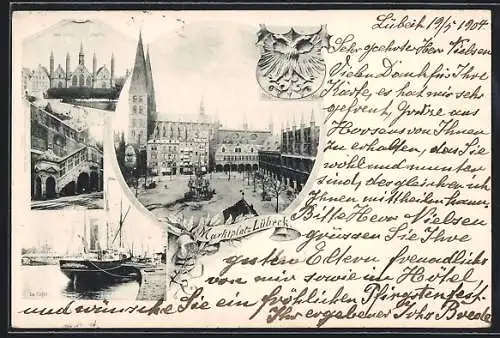 Lübeck 19/5 1904.
Sehr geehrter Herr Nielsen
Vielen Dank für Ihre
Karte, es hat mir sehr
gefreut, Grüsse aus
Horsens von Ihnen
zu erhalten, das Sie
wohl und munter
sind, desgleichen ich
Ihnen mittheilen kann,
Bitte Herr Nielsen
grüssen Sie Ihre
guten Eltern freundlichst
von mir sowie im Hôtel,
und wünsche Sie ein fröhliches Pfingstenfest.
Ihr ergebener Johs
Marktplatz Lübeck